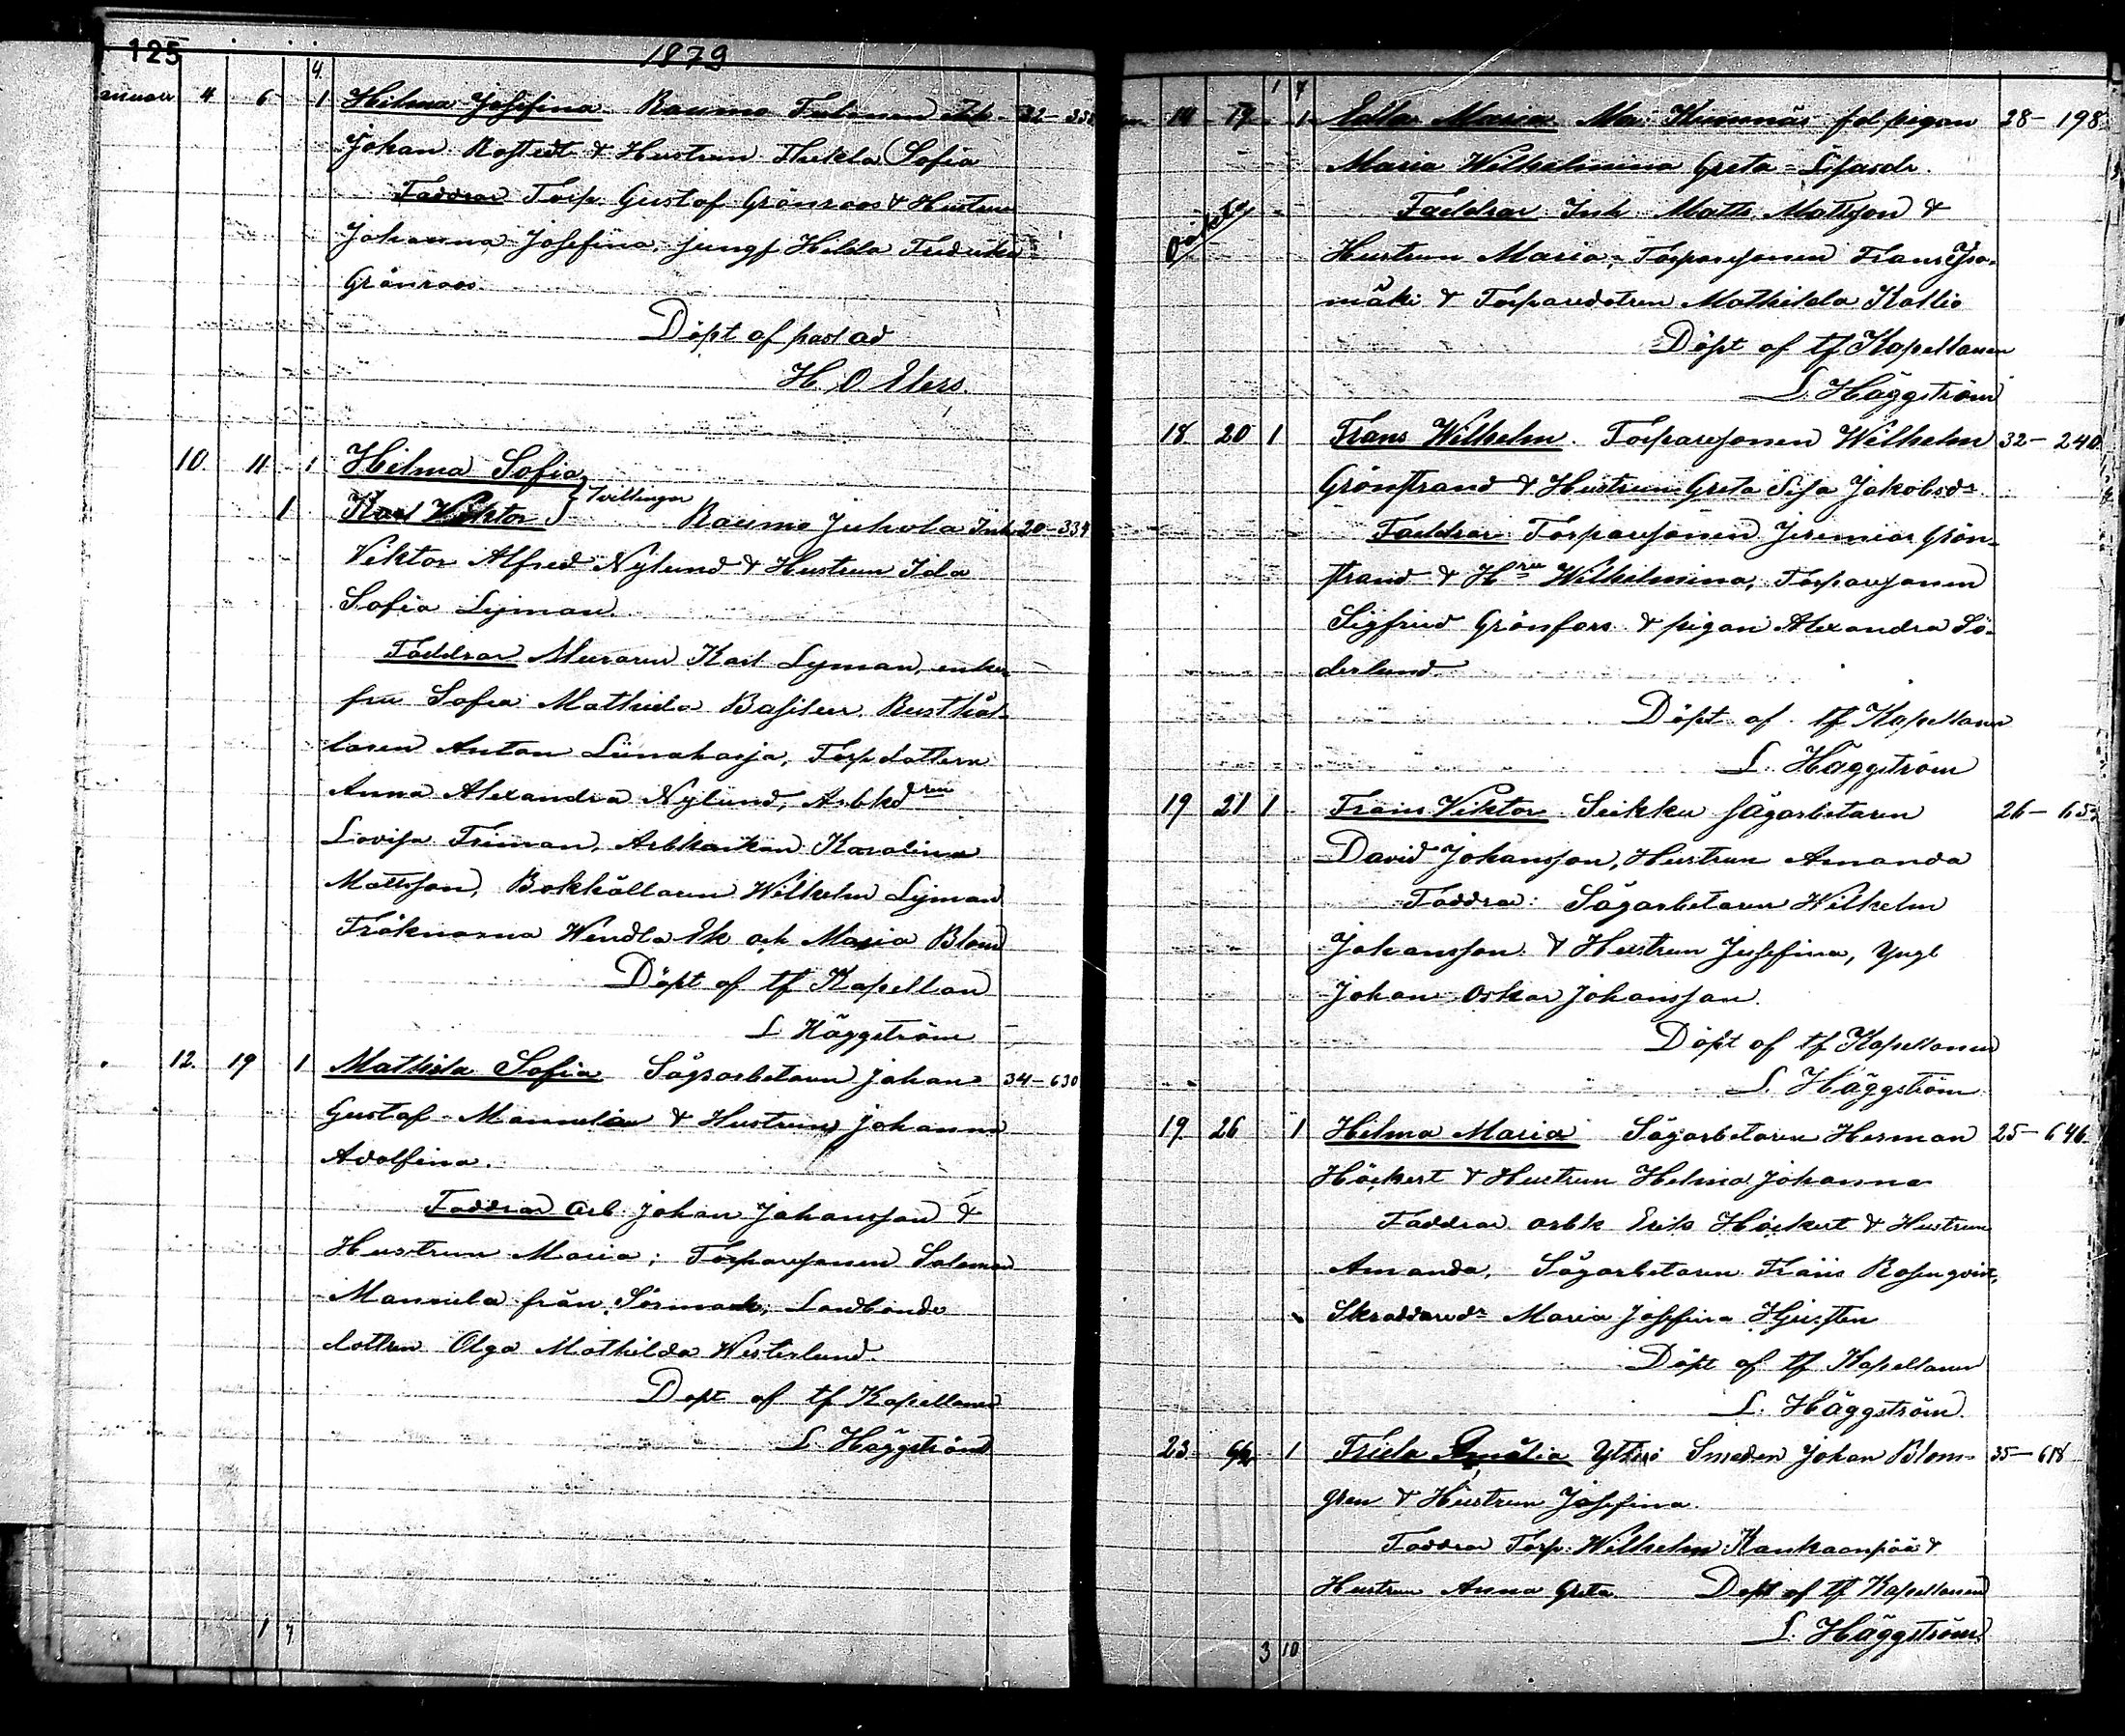 125
1879
4
4 6 1 Hilma Josefina Raumo
Johan Rostedt & Hustrun Thekla Sofia
Faddrar Torp. Gustaf Grönroos & Hustrun
Johanna Josefina, jungf Hilda Fredrika
Grönroos.
Döpt af past ad
H. O. Elers.
10 11 1 Hilma Sofia
1 Karl Viktor } Tvillingar Raumo Juhola Inh 20-334
Viktor Alfred Nylund & Hustrun Ida
Sofia Lyman.
Faddrar Muraren Karl Lyman, enke-
fru Sofia Mathilda Basileer. Rusthål-
laren Anton Liinaharja, Torpdottern
Anna Alexandra Nylund, Arbkd
Lovisa Friman, Arbkarlen Karolina
Mattsson, Bokhållaren Wilhelm Lyman
Fröknarna Wendla Ek och Maria Blom
Döpt af tf Kapellan
L Häggström
12. 19 1 Mathilda Sofia Sågarbetaren Johan 34-630
Gustaf Mannila & Hustrun Johanna
Adolfina.
Faddrar Arb Johan Johansson &
Hustrun Maria; Torparesonen Salomon
Mannila från Sörmark, Landbonde
dottren Olga Mathilda Westerlund.
Döpt af tf Kapellanen
L Häggström
1 7
1 7
19 1 Edla Maria Kumnäs fol pigan 28-198
Maria Wilhelmina Greta-Lisasdr.
Faddrar Inh Matts Mattsson &
Oäkta
Hustrun Maria, Torparesonen Frans Iso-
mäki & Torparedotren Mathilda Kallio
Döpt af tf Kapellanen
L. Häggström
18 20 1 Frans Wilhelm. Torparesonen Wilhelm 32-240
Grönstrand & Hustrun Greta Lisa Jakobsdr
Faddrar: Torparesonen Jeremias Grön-
strand & Hru Wilhelmina, Torparesonen
Sigfrid Grönfors & pigan Alexandra Sö-
derlund.
Döpt af tf Kapellanen
L. Häggström
19 21 1 Frans Viktor Seikku Sågarbetaren 26-65
David Johansson, Hustrun Amanda
Faddrar: Sågarbetaren Wilhelm
Johansson & Hustrun Josefina, Yngl
Johan Oskar Johansson.
Döpt af tf Kapellanen
L. Häggström
19 26 1 Helma Maria Sågarbetaren Herman 25-646
Höckert & Hustrun Helma Johanna
Faddrar arbk Erik Höckert & Hustrun
Amanda, Sågarbetaren Frans Rosenqvist,
Skraddaredr Maria Josefina Hjusten
Döpt af tf Kapellanen
L. Häggström.
23 1 Frida Amalia Smeden Johan Blom- 35-618
gren & Hustrun Josefina.
Faddrar Torp. Wilhelm Kankaanpää &
Hustrun Anna Greta. Döpt af tf Kapellanen
L. Häggström.
3 10